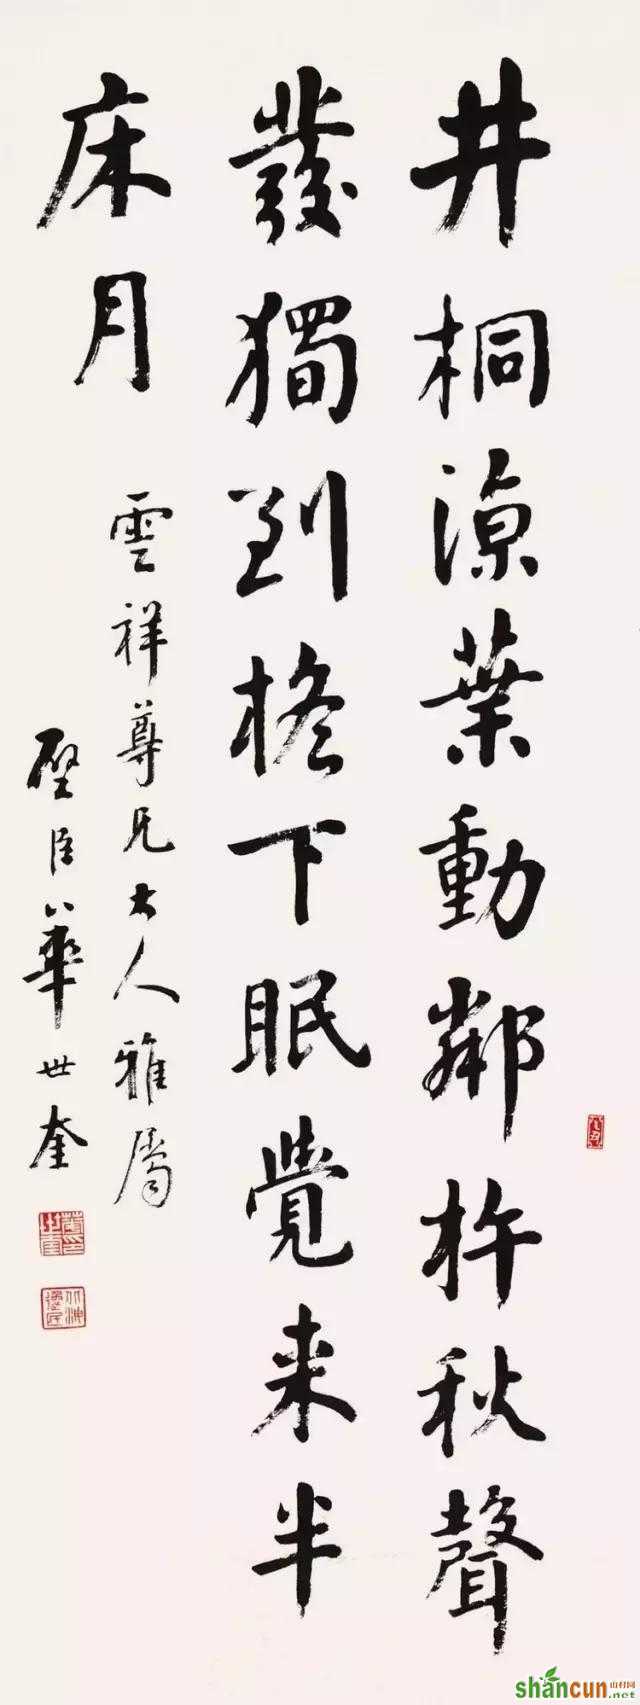 井桐涼葉動鄰杵秋聲
發獨到檐下眠覺来半
床月
雲祥尊兄大人雅屬
壁臣華世奎
shancun
山村网
.net